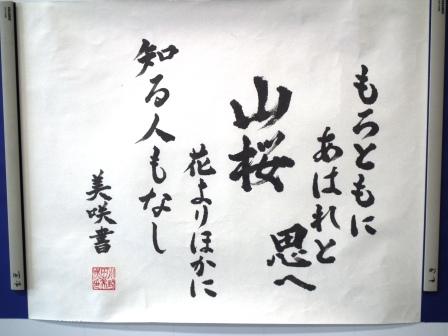 もろともに
あはれと
思へ
山桜
花よりほかに
知る人もなし
美咲書